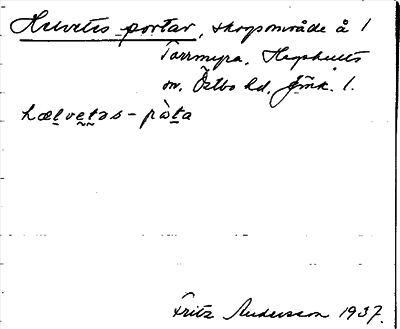 Helvetes portar, skogsområde å 1
Torrmyra, Hagshults
sn. Östbo hd. Jmk. l.
hælvetəs - pàta
Fritz Andersson 1937.